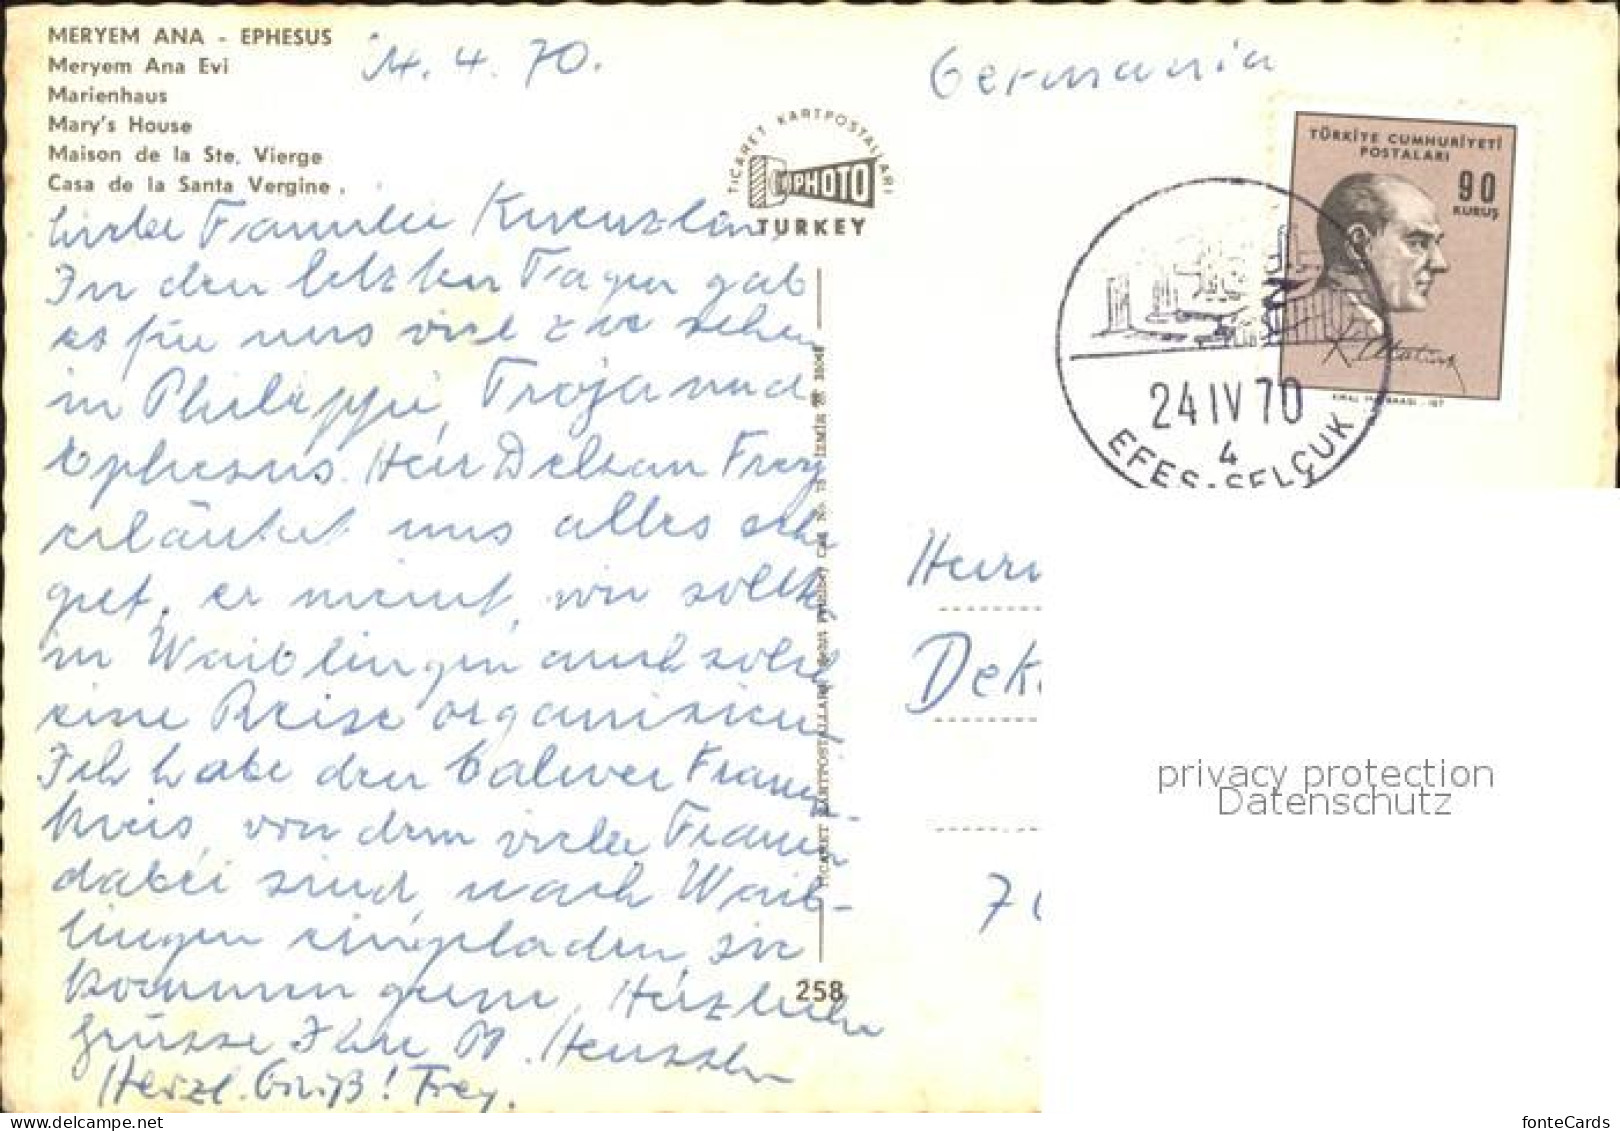 MERYEM ANA - EPHESUS
Meryem Ana Evi
Marienhaus
Mary's House
Maison de la Ste. Vierge
Casa de la Santa Vergine.
4. 70.
Germania
TICARET KARTPOSTALLARI
PHOTO
TURKEY
TÜRKİYE CUMHURİYETİ
POSTALARI
90
KURUŞ
K. Atatürk
24 IV 70
4
EFES-SELÇUK
Liebe Familie
In den letzten Tagen gab
es für uns viel zu sehen
in Philippi, Troja und
Ephesus. Herr Dekan Frey
erläutert uns alles sehr
gut, er meint, wir sollten
in Waiblingen auch solch
eine Reise organisieren
Ich habe den Calwer Frauen-
kreis, von dem viele Frauen
dabei sind, nach Waib-
lingen eingeladen, sie
kommen gerne. Herzliche
Grüsse Ihre
Herzl. Gruß! Frey.
258
Herrn
Dek
7
privacy protection
Datenschutz
fonteCards
www.delcampe.net